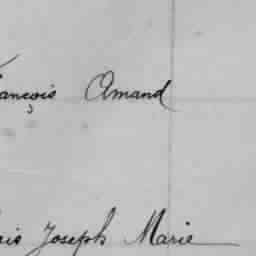 ançois Amand
is Joseph Marie